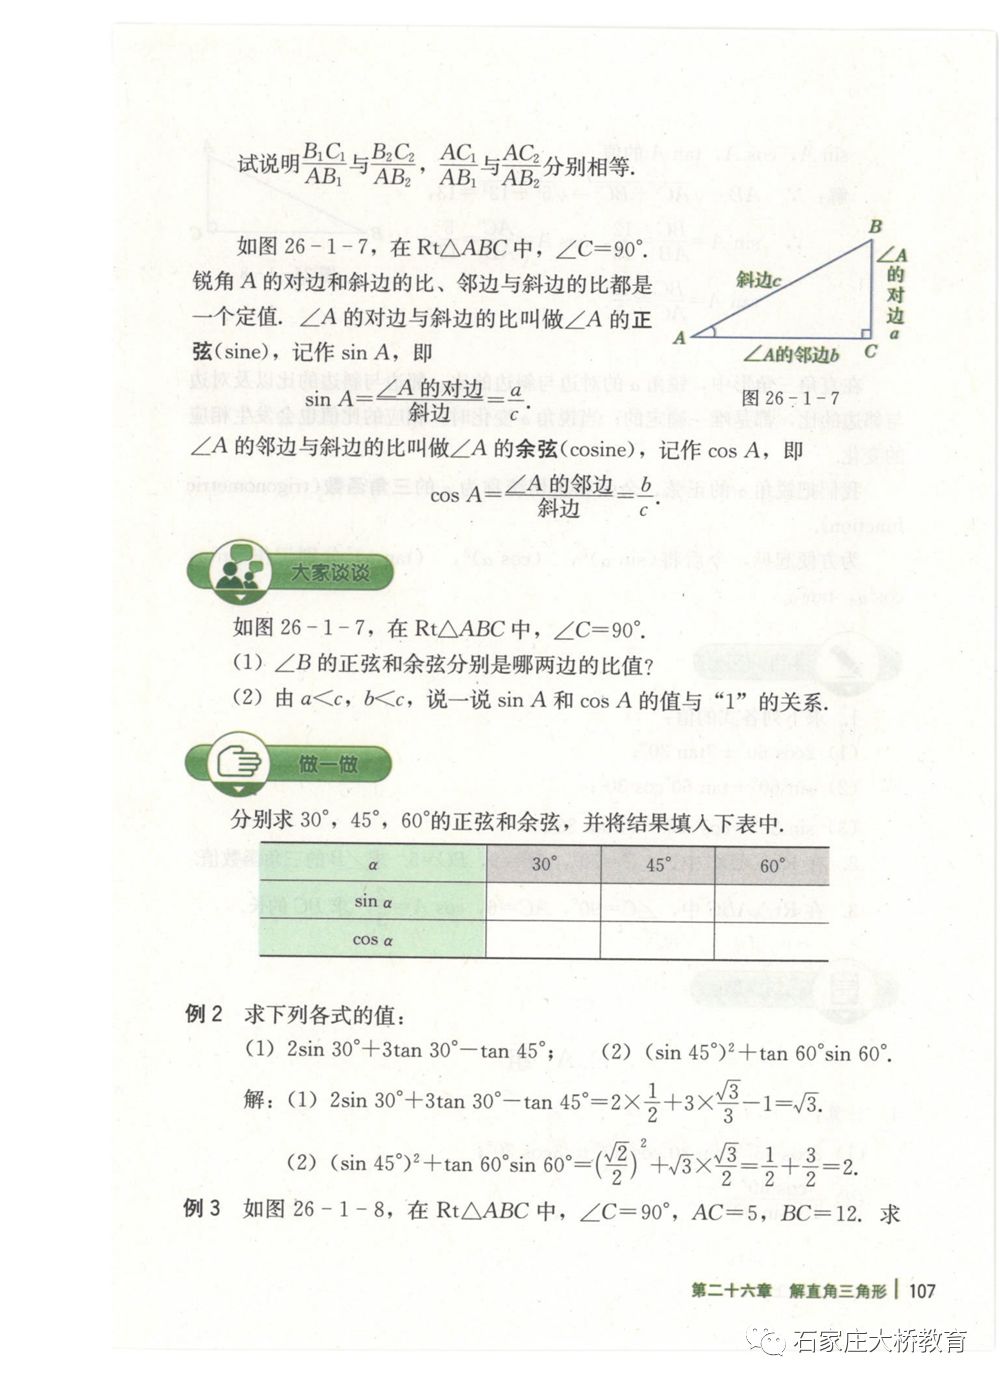 试说明B₁C₁/AB₁与B₂C₂/AB₂，AC₁/AB₁与AC₂/AB₂分别相等.
如图26-1-7，在Rt△ABC中，∠C=90°.
锐角A的对边和斜边的比、邻边与斜边的比都是
一个定值. ∠A的对边与斜边的比叫做∠A的正
弦(sine)，记作sin A，即
B
∠A的对边a
斜边c
A
∠A的邻边b
C
图26-1-7
sin A=∠A的对边/斜边=a/c.
∠A的邻边与斜边的比叫做∠A的余弦(cosine)，记作cos A，即
cos A=∠A的邻边/斜边=b/c.
大家谈谈
如图26-1-7，在Rt△ABC中，∠C=90°.
(1) ∠B的正弦和余弦分别是哪两边的比值?
(2) 由a<c，b<c，说一说sin A和cos A的值与“1”的关系.
做一做
分别求30°，45°，60°的正弦和余弦，并将结果填入下表中.
α 30° 45° 60°
sin α
cos α
例2 求下列各式的值：
(1) 2sin 30°+3tan 30°-tan 45°； (2) (sin 45°)²+tan 60°sin 60°.
解：(1) 2sin 30°+3tan 30°-tan 45°=2×1/2+3×√3/3-1=√3.
(2) (sin 45°)²+tan 60°sin 60°=(√2/2)²+√3×√3/2=1/2+3/2=2.
例3 如图26-1-8，在Rt△ABC中，∠C=90°，AC=5，BC=12. 求
第二十六章 解直角三角形 107
石家庄大桥教育